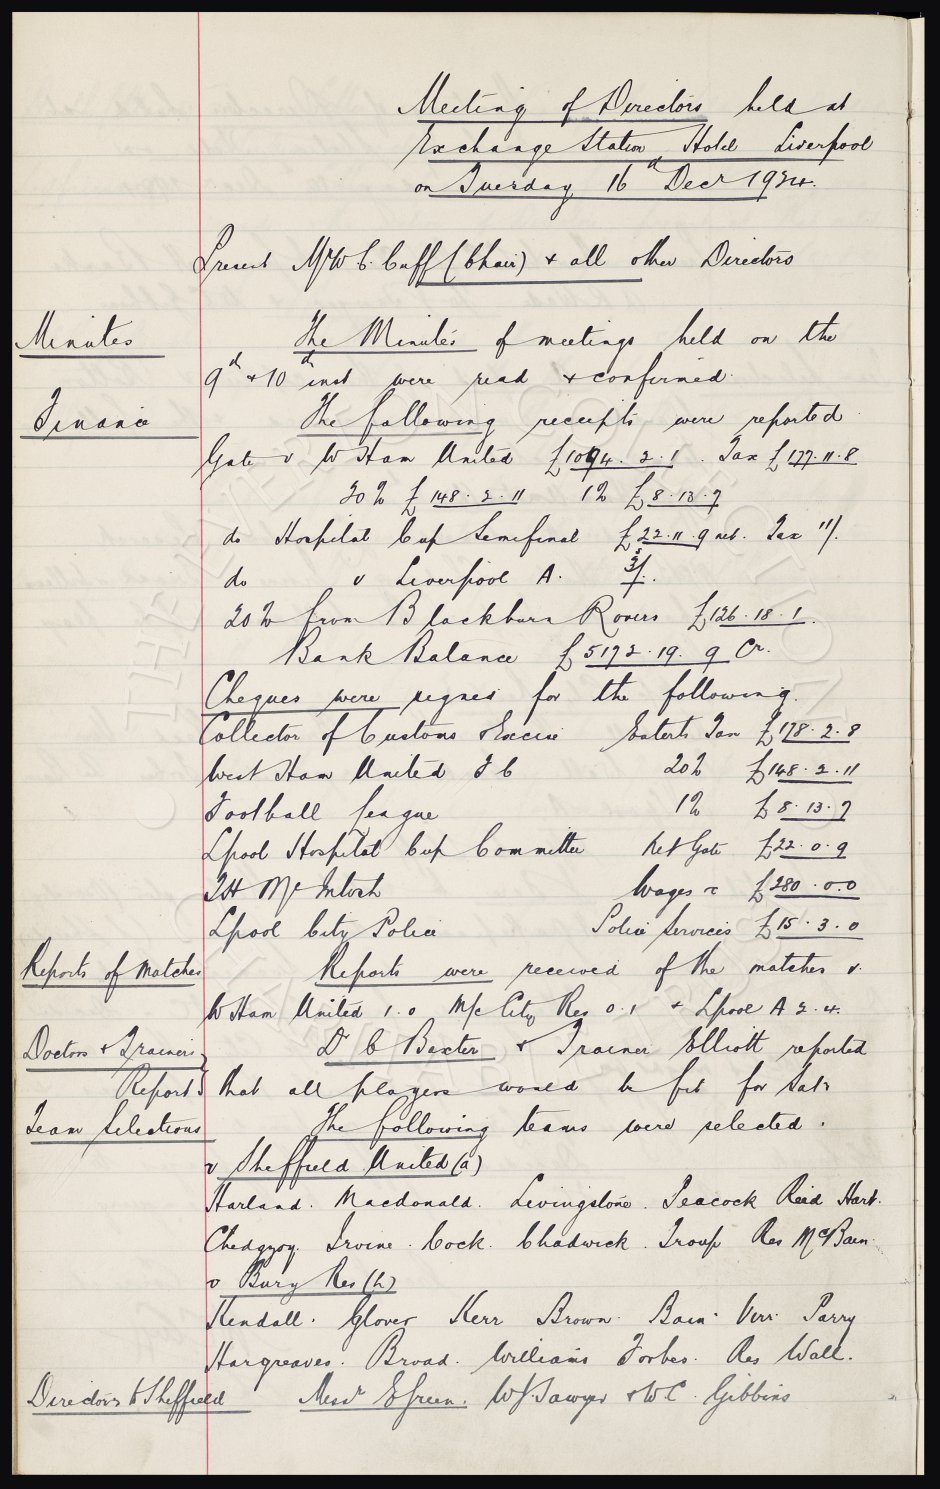 Meeting of Directors held at
Exchange Station Hotel Liverpool
on Tuesday 16th Decr 1924.
Present Mr W C Cuff (Chair) & all other Directors
Minutes The Minutes of meetings held on the
9th & 10th inst were read & confirmed.
Finance The following receipts were reported
Gate v W Ham United £1094. 2. 1. Tax £177. 11. 8
20% £148. 2. 11 1% £8. 13. 7
do Hospital Cup Semifinal £22. 11. 9 net. Tax 11/.
do v Liverpool A.
20% from Blackburn Rovers £126. 18. 1.
Bank Balance £5172. 19. 9 Cr.
Cheques were signed for the following.
Collector of Customs & Excise Entert Tax £178. 2. 8
West Ham United F C 20% £148. 2. 11
Football League 1% £8. 13. 7
Lpool Hospital Cup Committee Net Gate £22. 0. 9
T H McIntosh Wages &c £280. 0. 0
Lpool City Police Police Services £15. 3. 0
Reports of Matches Reports were received of the matches v.
W Ham United 1. 0 M/c City Res 0. 1 & Lpool A 2. 4.
Doctors & Trainers Dr C Baxter & Trainer Elliott reported
Report that all players would be fit for Satr
Team Selections The following teams were selected.
v Sheffield United (a)
Harland. Macdonald. Livingstone. Peacock Reid Hart.
Chedgzoy. Irvine. Cock. Chadwick. Troup Res McBain.
v Bury Res (h)
Kendall. Glover Kerr Brown. Bain. Virr. Parry
Hargreaves. Broad. Williams Forbes. Res Wall.
Directors to Sheffield Messrs E Green. W J Sawyer & W C Gibbins